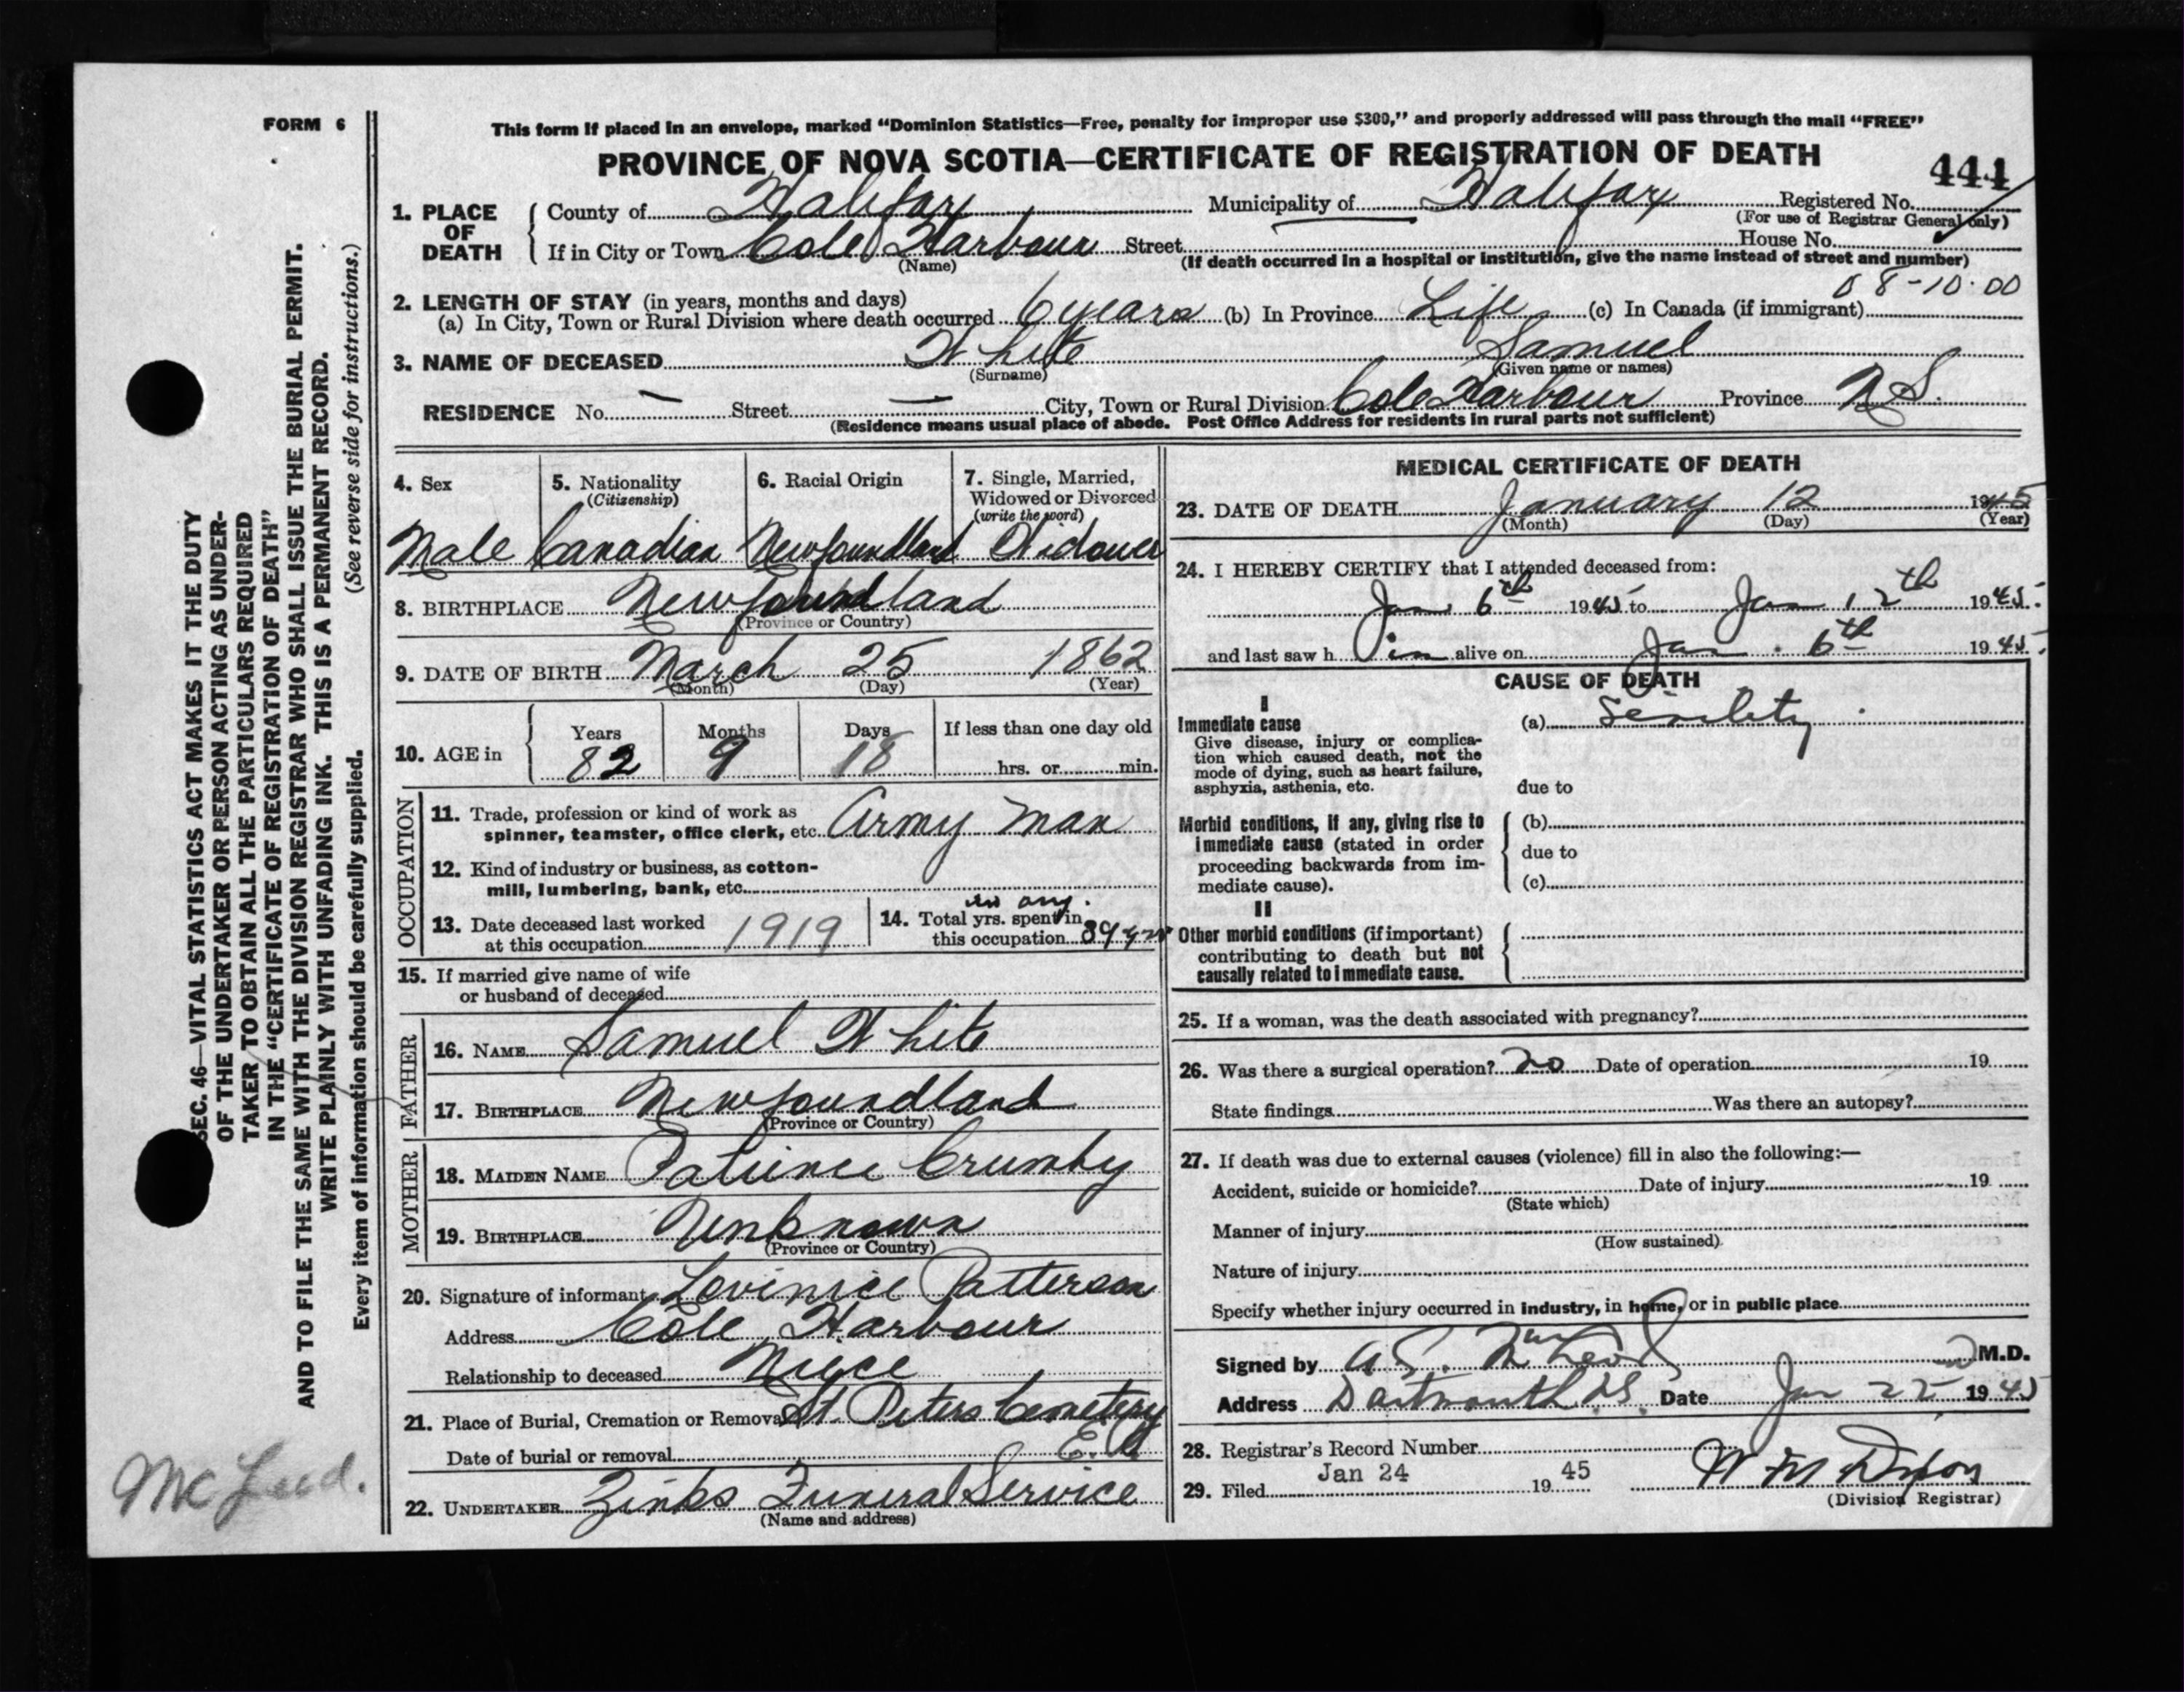 FORM 6
This form if placed in an envelope, marked “Dominion Statistics—Free, penalty for improper use $300,” and properly addressed will pass through the mail “FREE”
PROVINCE OF NOVA SCOTIA—CERTIFICATE OF REGISTRATION OF DEATH
444
1. PLACE OF DEATH
County of Halifax Municipality of Halifax Registered No.
(For use of Registrar General only)
If in City or Town Cole Harbour Street House No.
(Name) (If death occurred in a hospital or institution, give the name instead of street and number)
08-10-00
2. LENGTH OF STAY (in years, months and days)
(a) In City, Town or Rural Division where death occurred 6 years (b) In Province Life (c) In Canada (if immigrant)
3. NAME OF DECEASED White Samuel
(Surname) (Given name or names)
RESIDENCE No. — Street — City, Town or Rural Division Cole Harbour Province N S.
(Residence means usual place of abode. Post Office Address for residents in rural parts not sufficient)
4. Sex 5. Nationality (Citizenship) 6. Racial Origin 7. Single, Married, Widowed or Divorced (write the word)
Male Canadian Newfoundland Widower
8. BIRTHPLACE Newfoundland
(Province or Country)
9. DATE OF BIRTH March 25 1862
(Month) (Day) (Year)
10. AGE in Years Months Days If less than one day old
82 9 18 hrs. or min.
OCCUPATION
11. Trade, profession or kind of work as
spinner, teamster, office clerk, etc. Army Man
12. Kind of industry or business, as cotton-
mill, lumbering, bank, etc.
13. Date deceased last worked
at this occupation 1919
14. Total yrs. spent in
this occupation 39 yrs
15. If married give name of wife
or husband of deceased
FATHER
16. NAME Samuel White
17. BIRTHPLACE Newfoundland
(Province or Country)
MOTHER
18. MAIDEN NAME Patience Crumby
19. BIRTHPLACE Unknown
(Province or Country)
20. Signature of informant Lovinice Patterson
Address Cole Harbour
Relationship to deceased Niece
21. Place of Burial, Cremation or Removal St. Peters Cemetery
Date of burial or removal E.P.
22. UNDERTAKER Zinks Funeral Service
(Name and address)
MEDICAL CERTIFICATE OF DEATH
23. DATE OF DEATH January 12 1945
(Month) (Day) (Year)
24. I HEREBY CERTIFY that I attended deceased from:
Jan 6th 1945 to Jan 12th 1945.
and last saw h im alive on Jan. 6th 1945.
CAUSE OF DEATH
I
Immediate cause
Give disease, injury or complica-
tion which caused death, not the
mode of dying, such as heart failure,
asphyxia, asthenia, etc.
(a) Senility
due to
Morbid conditions, if any, giving rise to
immediate cause (stated in order
proceeding backwards from im-
mediate cause).
(b)
due to
(c)
II
Other morbid conditions (if important)
contributing to death but not
causally related to immediate cause.
25. If a woman, was the death associated with pregnancy?
26. Was there a surgical operation? no Date of operation 19
State findings Was there an autopsy?
27. If death was due to external causes (violence) fill in also the following:—
Accident, suicide or homicide? Date of injury 19
(State which)
Manner of injury
(How sustained)
Nature of injury
Specify whether injury occurred in industry, in home, or in public place
Signed by McLeod M.D.
Address Dartmouth N.S. Date Jan 22 1945
28. Registrar's Record Number
29. Filed Jan 24 19 45 W M Dixon
(Division Registrar)
SEC. 46—VITAL STATISTICS ACT MAKES IT THE DUTY
OF THE UNDERTAKER OR PERSON ACTING AS UNDER-
TAKER TO OBTAIN ALL THE PARTICULARS REQUIRED
IN THE “CERTIFICATE OF REGISTRATION OF DEATH”
AND TO FILE THE SAME WITH THE DIVISION REGISTRAR WHO SHALL ISSUE THE BURIAL PERMIT.
WRITE PLAINLY WITH UNFADING INK. THIS IS A PERMANENT RECORD.
(See reverse side for instructions.)
Every item of information should be carefully supplied.
McLeod.